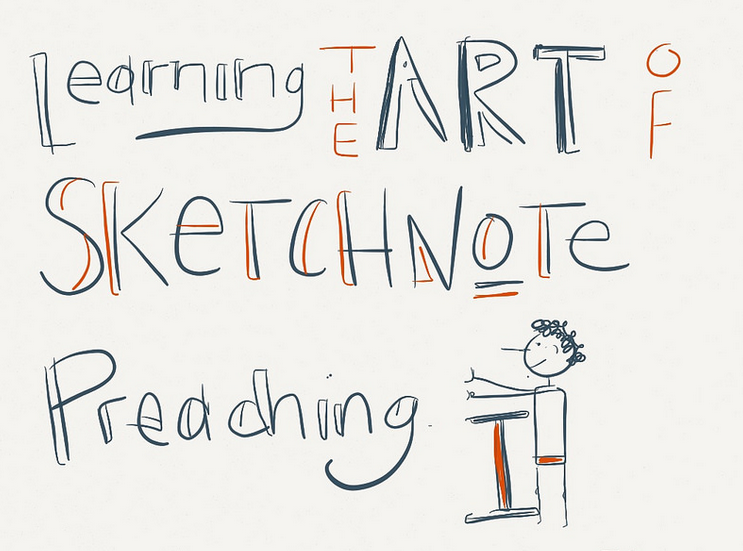 Learning THE ART OF
SKeTCHNOTe
Preaching